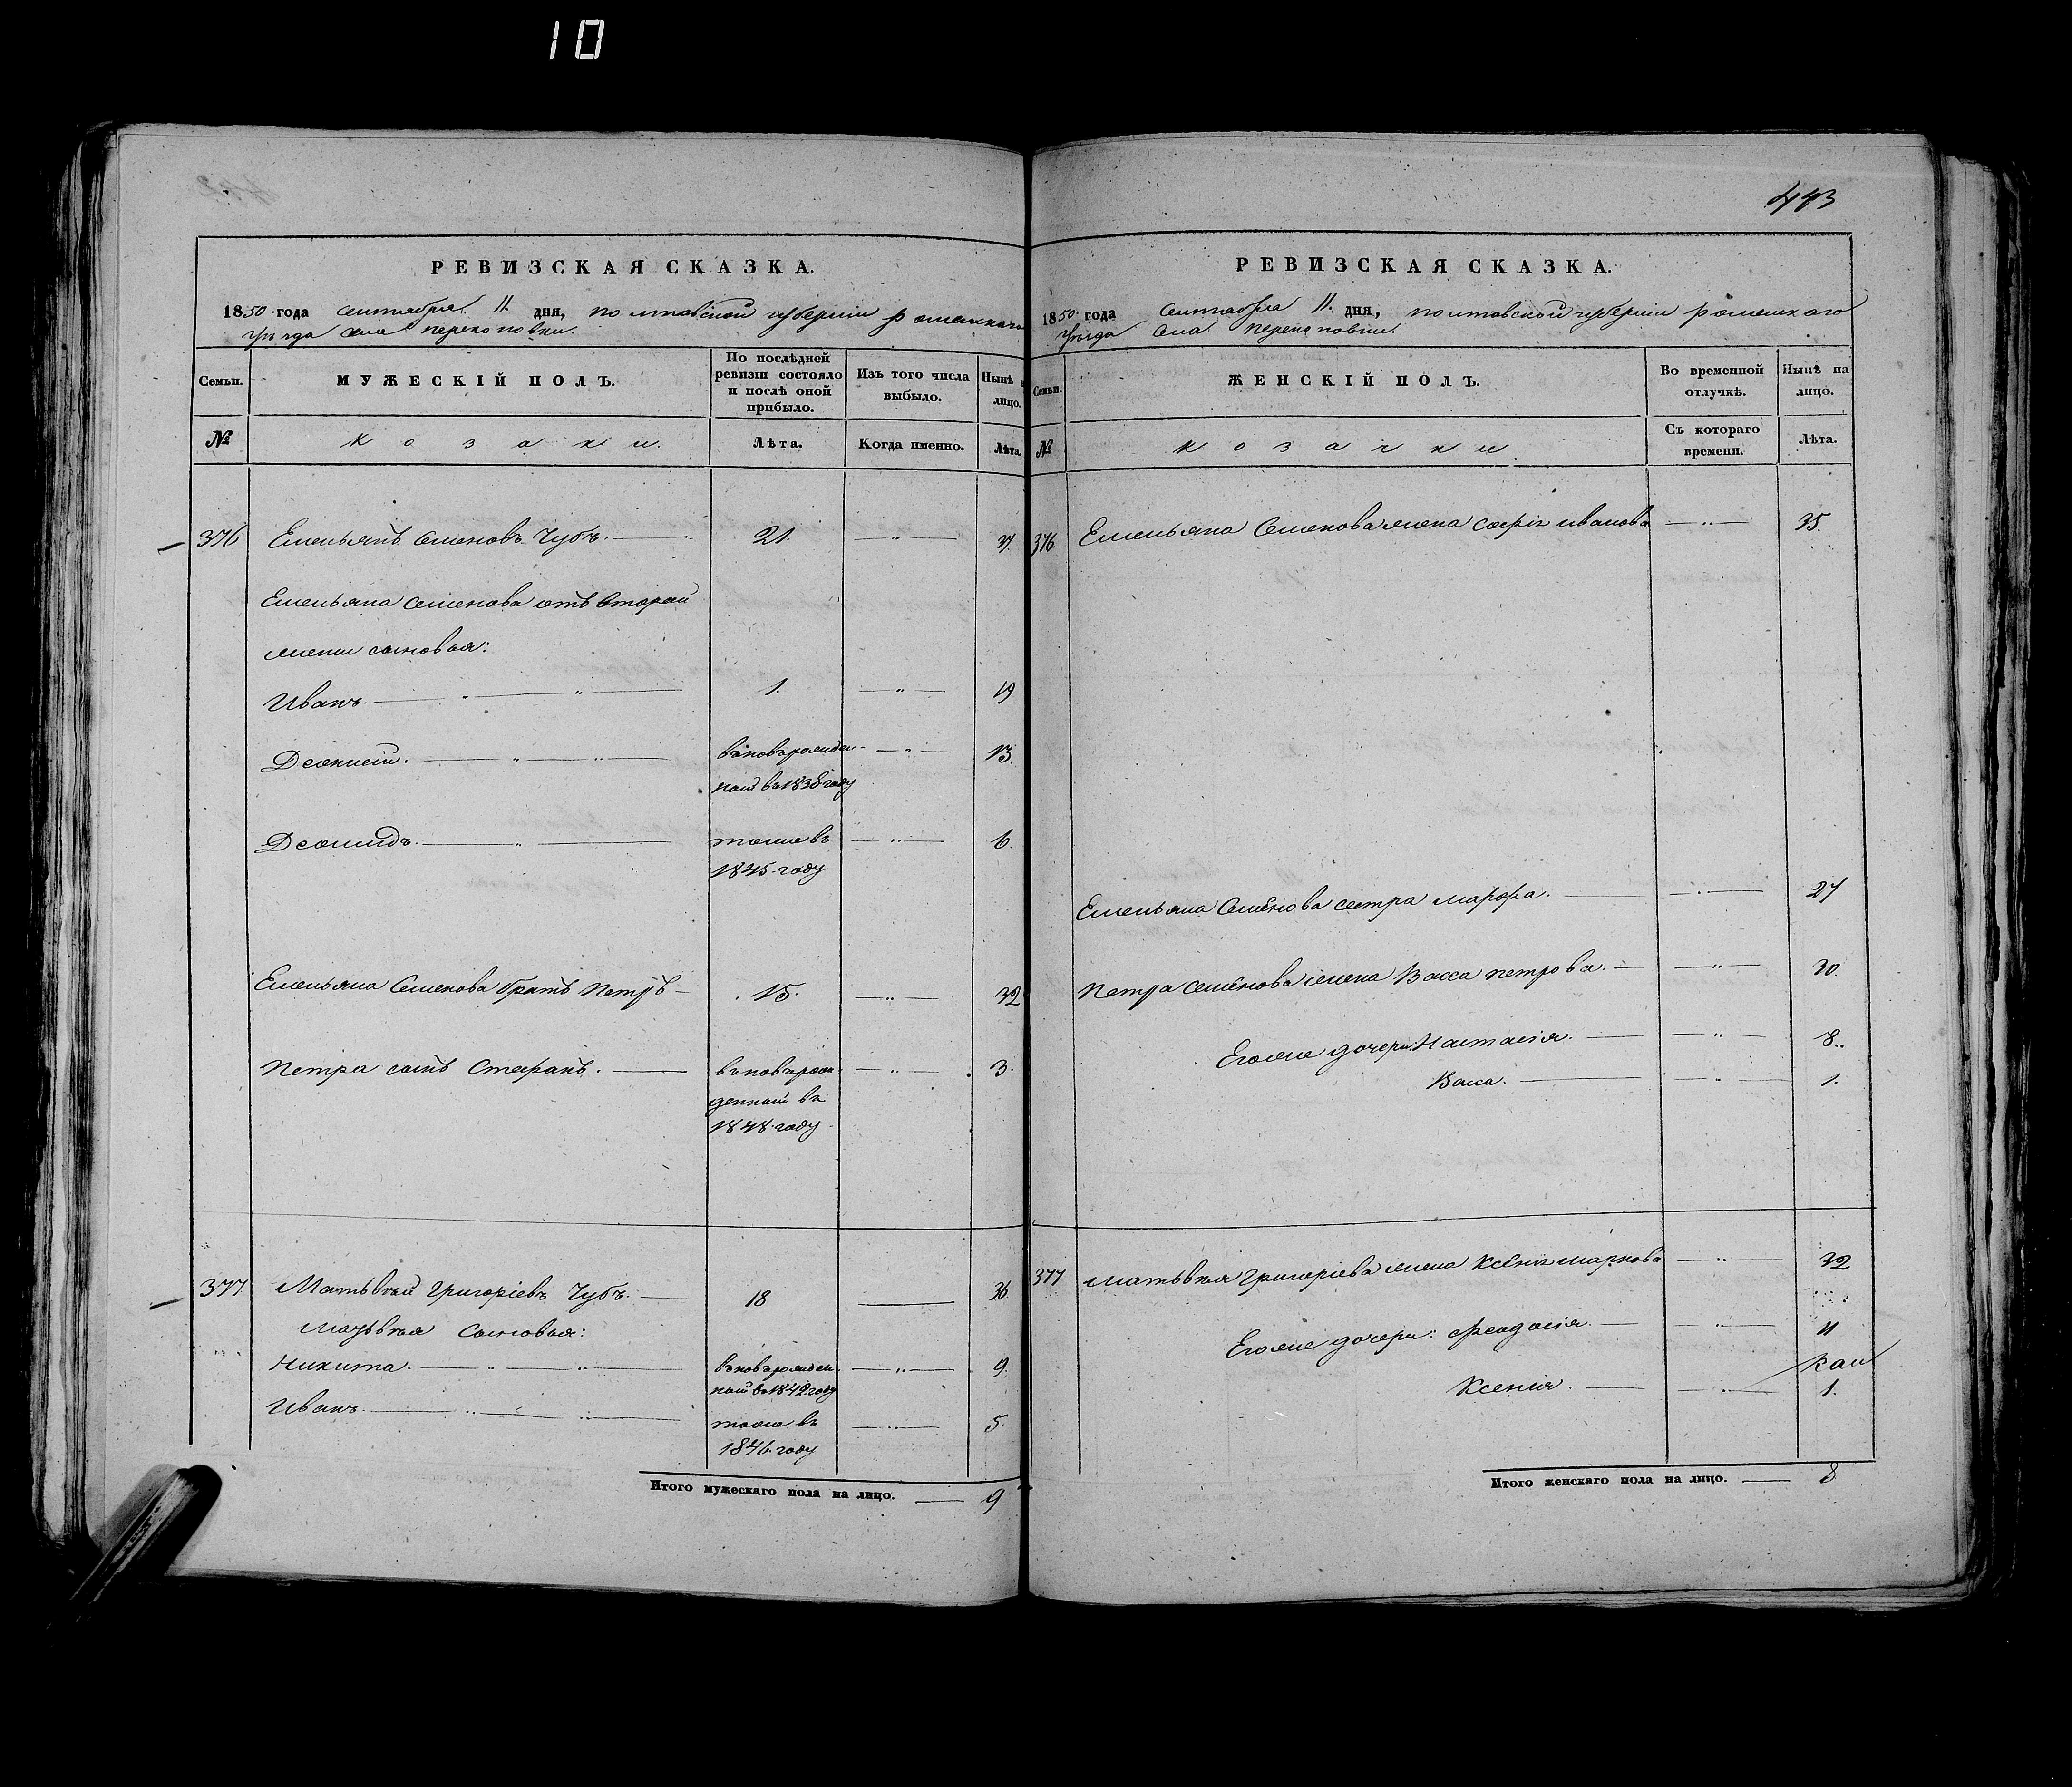 10
443
РЕВИЗСКАЯ СКАЗКА.
1850 года сентября 11. дня, полтавской губерніи роменскаго
уѣзда села перекоповки.
Семьи.
МУЖЕСКІЙ ПОЛЪ.
По послѣдней ревизіи состояло и послѣ оной прибыло.
Изъ того числа выбыло.
Нынѣ на лицо.
№
козаки.
Лѣта.
Когда именно.
Лѣта.
376 Емельянъ Семеновъ Чубъ. 21. 37.
Емельяна Семенова отъ второй
жены сыновья:
Иванъ. 1. 19
Деонисій. вновьрожден- 13.
ный в 1838 году
Деомидъ. тоже въ 6.
1845. году
Емельяна Семенова братъ Петръ 15. 32
Петра сынъ Стефанъ. вновьрож- 3.
денный въ
1848. году
377 Матьвѣй Григоріевъ Чубъ. 18 36.
Матьвѣя сыновья:
Никита. вновьрожден- 9.
ный в 1842 году
Иванъ. тоже въ 5.
1846. году
Итого мужескаго пола на лицо. 9
РЕВИЗСКАЯ СКАЗКА.
1850 года Сентября 11. дня, полтавской губерніи роменскаго
уѣзда села перекоповки.
Семьи.
ЖЕНСКІЙ ПОЛЪ.
Во временной отлучкѣ.
Нынѣ на лицо.
№
козачки.
Съ котораго времени.
Лѣта.
376 Емельяна Семенова жена Софія иванова 35.
Емельяна Семенова сестра марфа. 27
Петра семенова жена Васса петрова. 30.
Егоже дочери: Настасія. 8.
Васса. 1.
377 Матьвѣя Григоріева жена Ксенія маркова 32
Егоже дочери: Феодосія. 11
Ксенія. 1.
Итого женскаго пола на лицо. 8